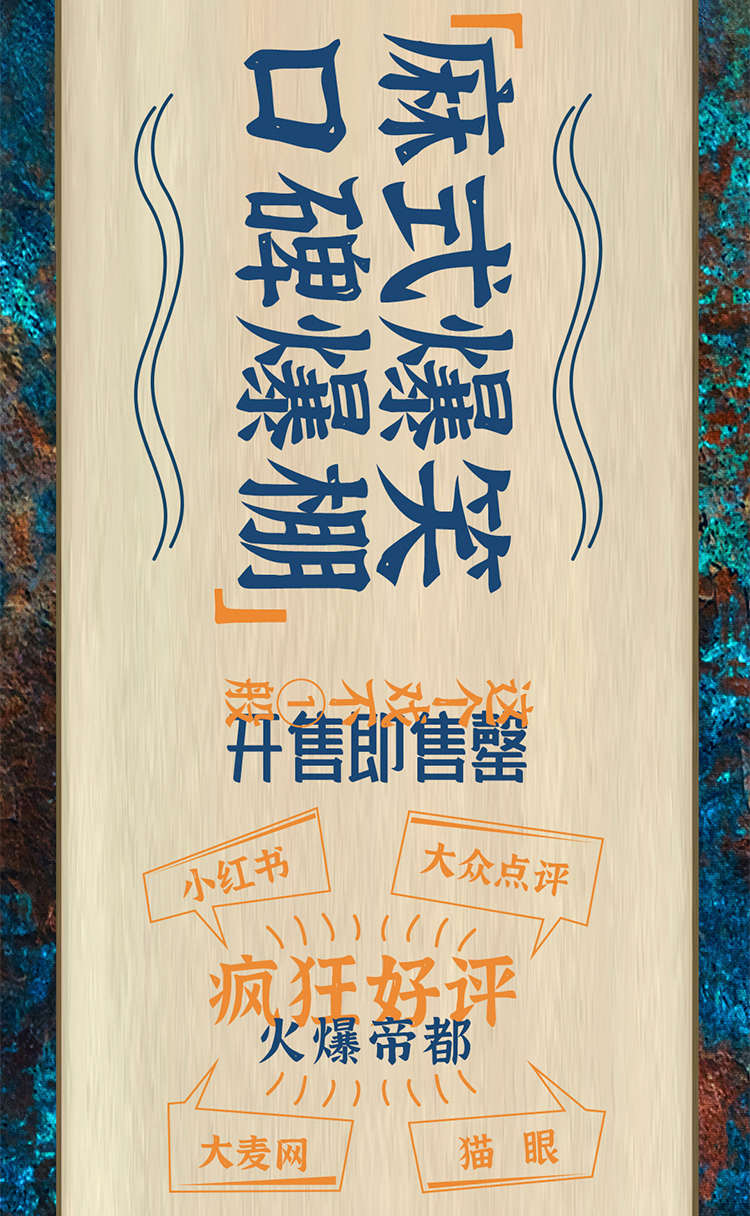 「麻式爆笑
口碑爆棚」
这个戏不①般
开售即售罄
小红书
大众点评
疯狂好评
火爆帝都
大麦网
猫 眼